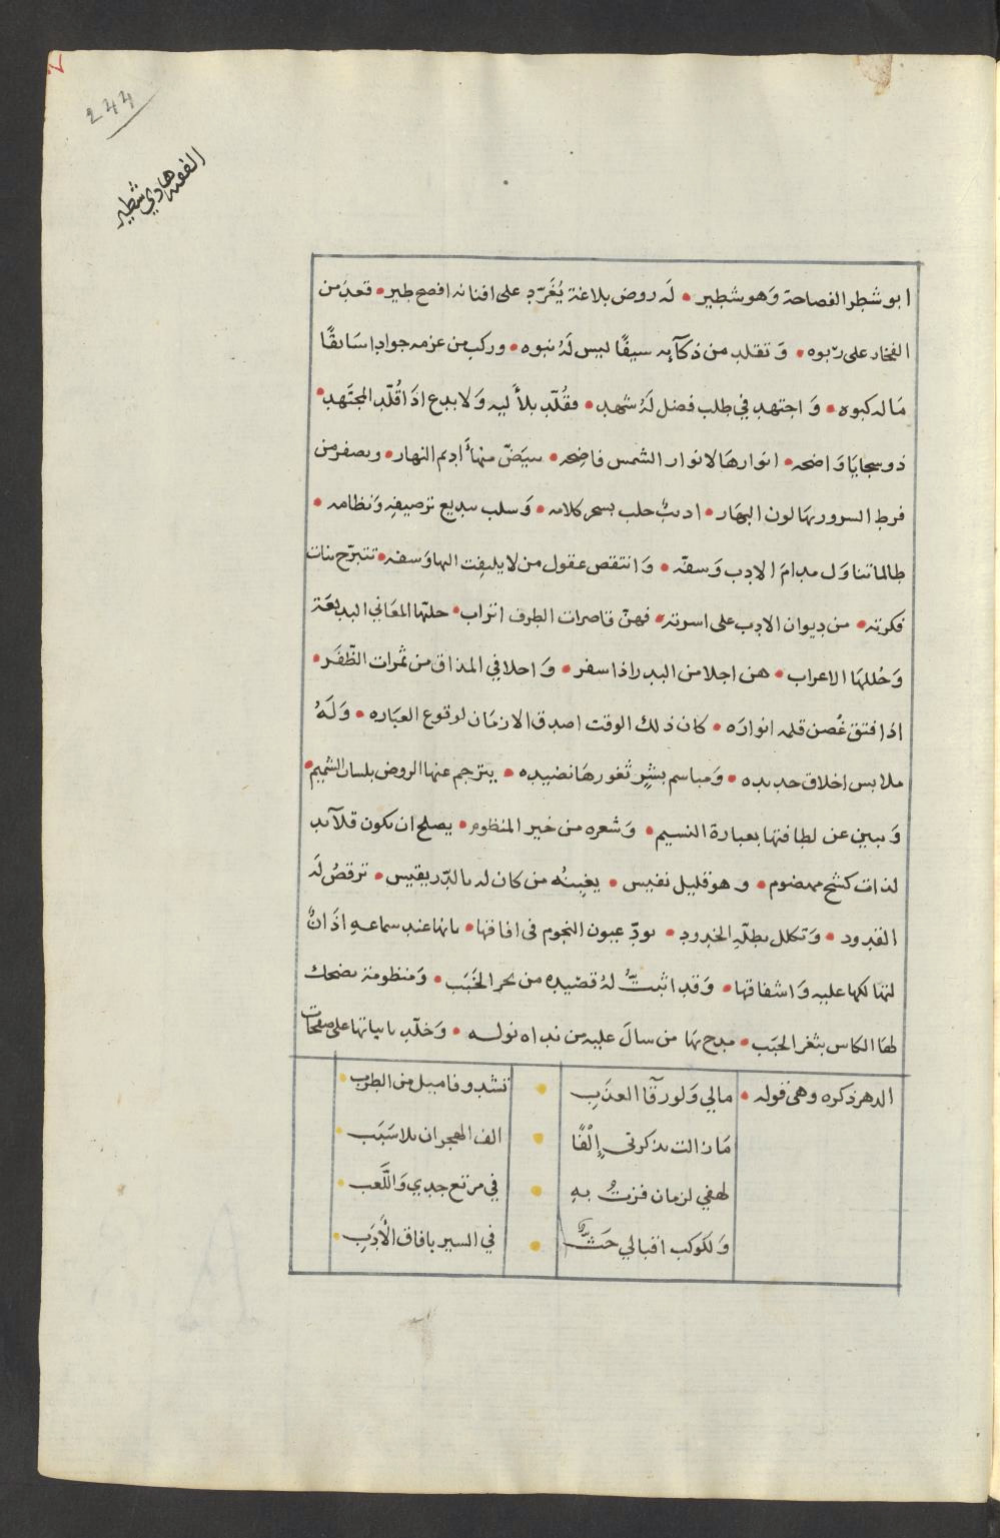 ٢٤٤
الفقيه هادي شطير
ابو شطر الفصاحة وَهو شطير • لَه روض بلاغة يُغَرّد على افنانه افصح طير • قعد من
الفخار على ربوه • وَتقلد من ذكآيه سيفًا ليس لَهُ نبوه • وركب من عزمه جوادا سَابقًا
مَا له كبوه • وَاجتهد في طلب فضل لَهُ شهد • فقُلّد بلأليه وَلا بدع اذَا قُلّد المجتَهد •
ذو سجايَا وَاضحه • انوارهَا لانوار الشمس فاضِحه • يبيَضّ منهَا أَديم النهار • ويصفر من
فرط السرور بهَا لون البهَار • اديبٌ خلب بسحر كلامه • وَسلب ببديع ترصيفهِ وَنظامه •
طالما تناوَل مدامَ الادب وَسفّه • وَانتقص عقول من لا يلتفِت اليهَا وَسفه • تتبرّج بنات
فكرته • من ديوان الادب على اسرته • فهنّ قاصرات الطرف اتراب • حليّها المعَاني البديعَة
وَحُللهَا الاعراب • هن اجلا من البدر اذا سفر • وَاحلا في المذاق من ثمرات الظّفَر •
اذا فتق غُصن قلمه انوارَه • كان ذلك الوقت اصدق الازمَان لوقوع العبَاره • وَلَهُ
ملابس اخلاق جديده • وَمباسم بِشرٍ ثغورهَا نضيده • يترجم عنها الروض بلسان الشميم •
وَيبين عن لطافتها بعبارة النسيم • وَشعره من خير المنظوم • يصلح ان يكون قلآئد
لذات كشح مهضوم • وهو قليل نفيس • يغبِنُه من كان له بالدّر يقيس • ترقصُ لَه
القدود • وَتكلل بطلّهِ الخدود • تودّ عيون النجوم في افاقها • بانها عند سماعهِ اذَانٌ
لتهَالكها عليه وَاشفاقها • وَقد اثبتُّ لهُ قصَيده من بحر الخَبَب • وَمنظومة يضحك
لهَا الكاس بثغر الحبَب • مدح بهَا من سالَ عليه من نداه نوله • وَخلّد باياتها على صفحات
الدهر ذكره وهى قوله • مالي وَلورقآ العذَبِ • تشدو فاميل من الطرب •
مَا زالت تذكرنى إِلْفًا • الف الهجران بلا سَبَب •
لهفي لزمان فزتُ بهِ • في مرتع جدي وَاللَّعب •
وَلكوكب اقبالي حَثٌّ • في السير بافاق الْأَدَبِ •